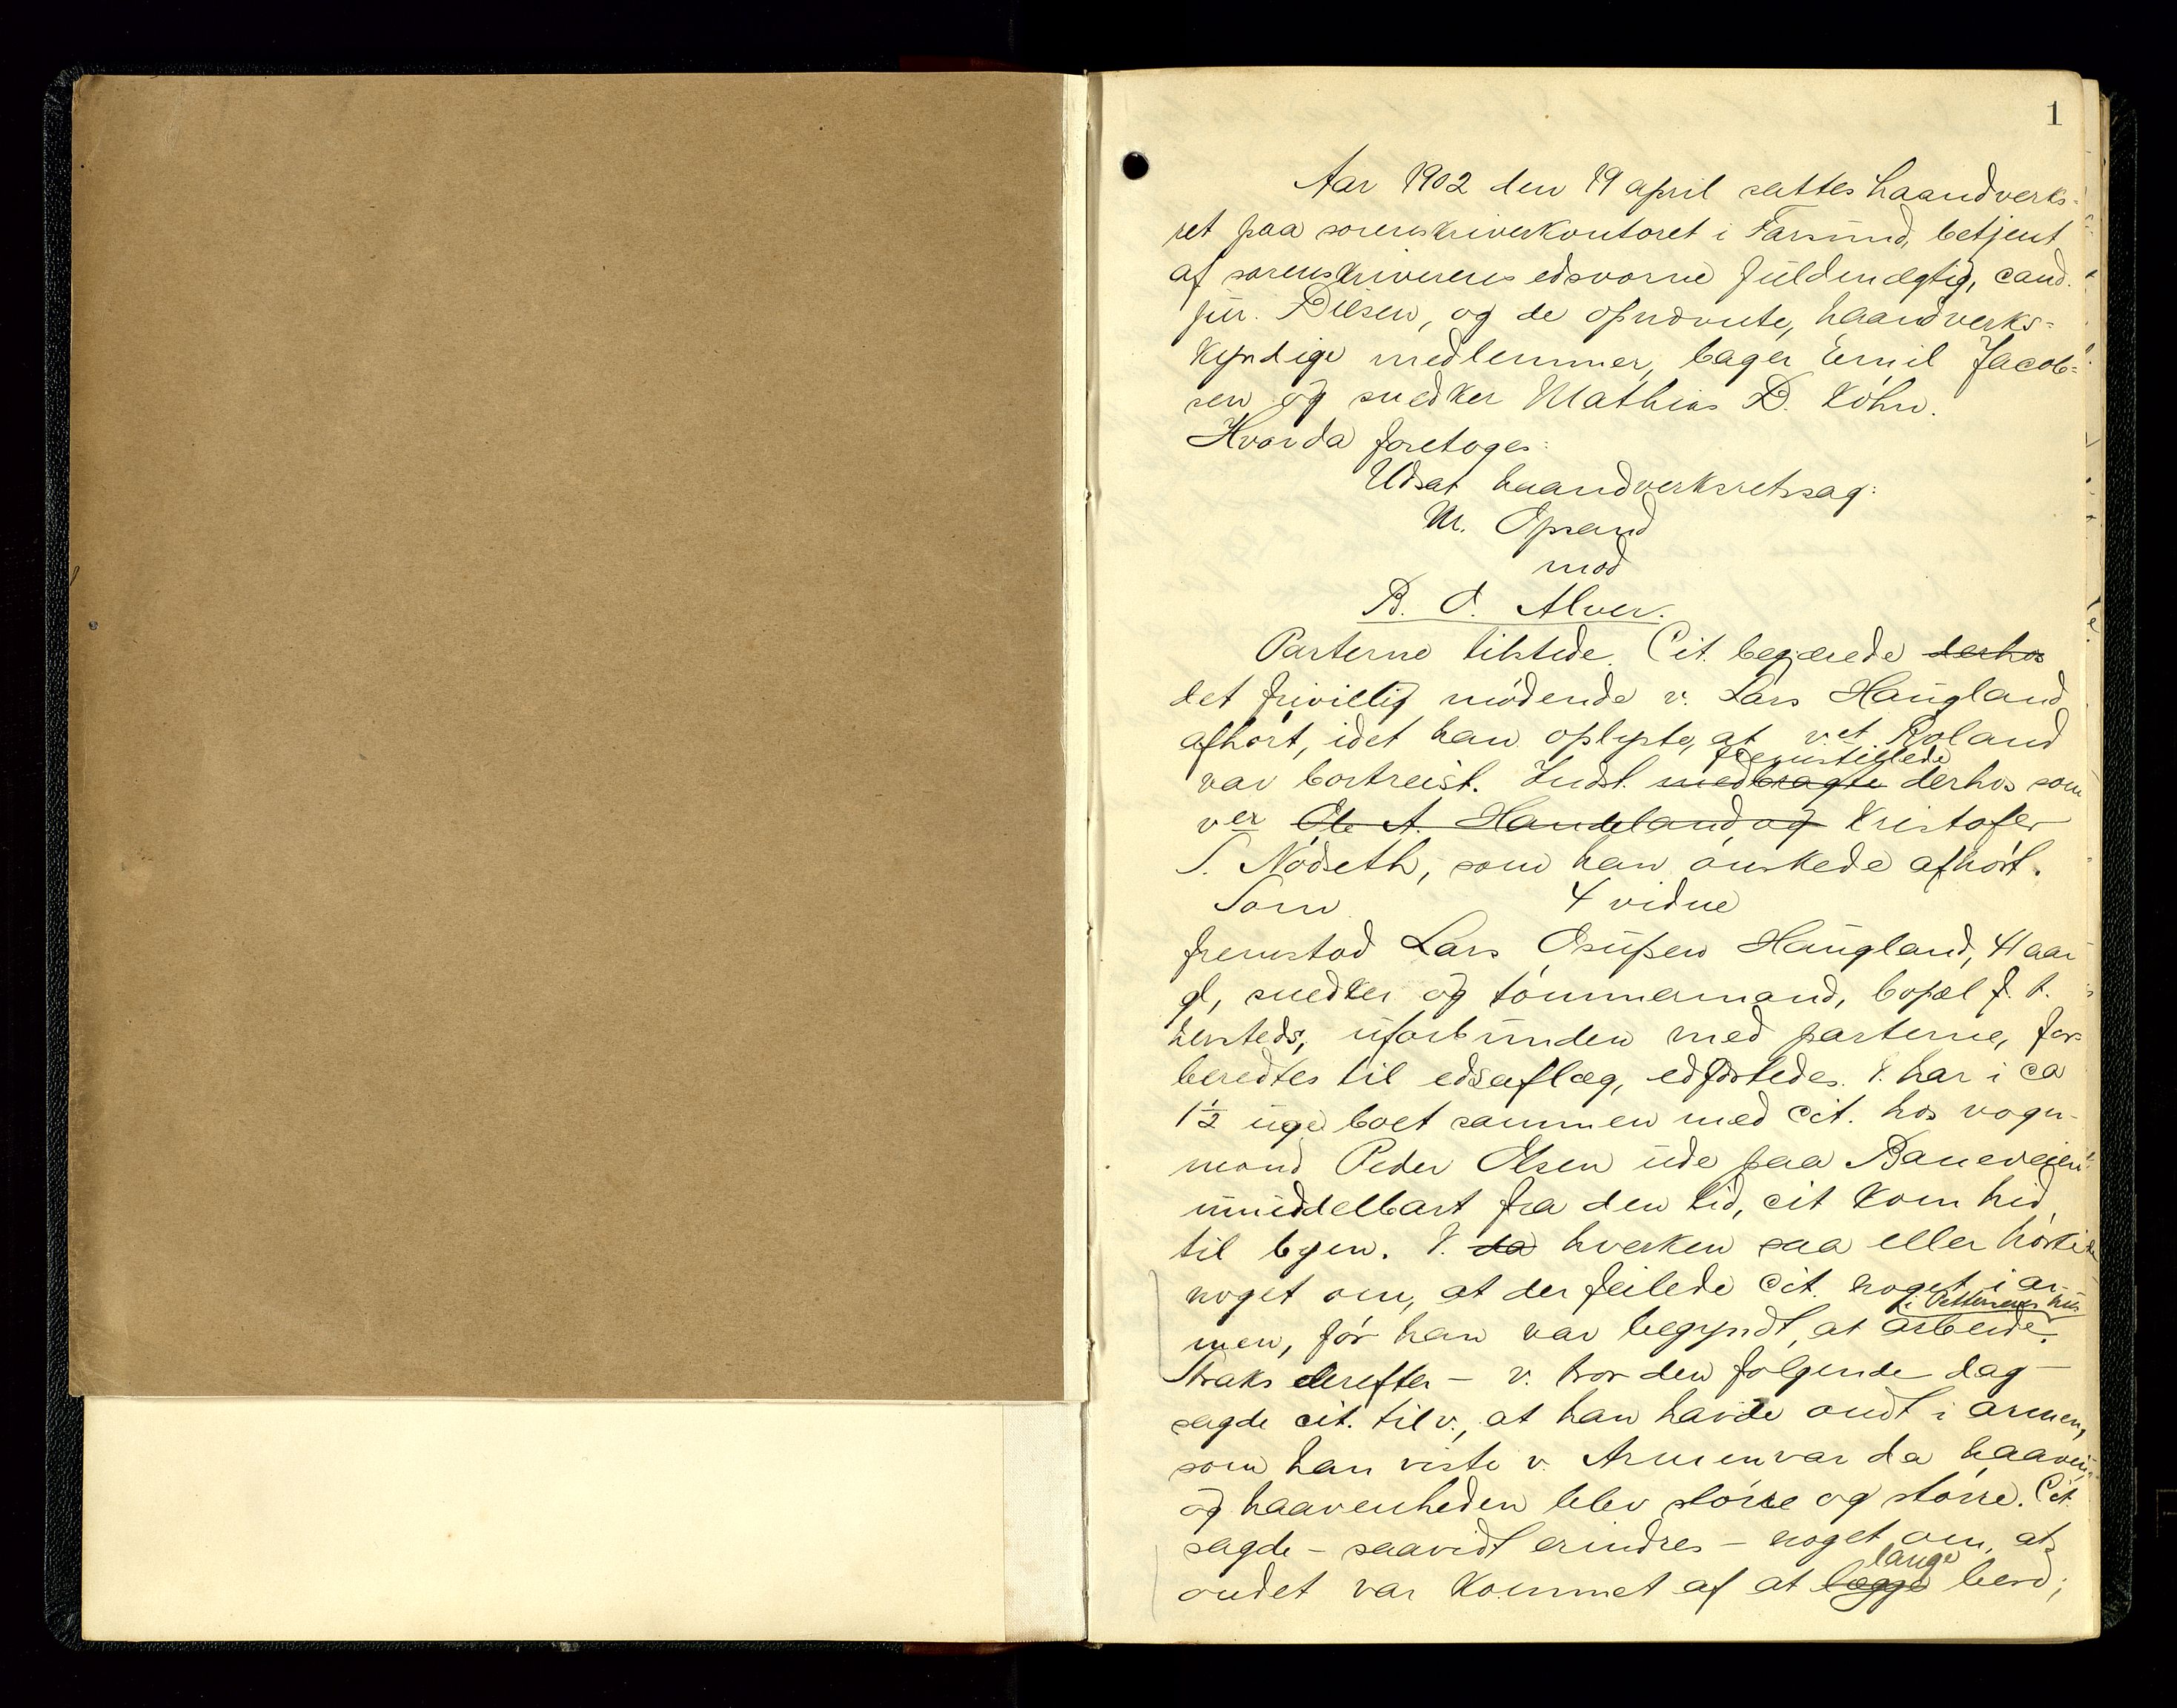 1
Aar 1902 den 19 april sattes haandverks-
ret paa sorenskriverkontoret i Farsund, betjent
af sorenskriverens edsvorne fuldmægtig, cand.
jur. , og de opnævnte, haandverks-
kyndige medlemmer, bager Emil Jacob-
sen og snedker Mathias D. Köhn.
Hvorda foretoges:
Udsat haandverksretssag:
M. Opsand
mod
B. O. Alver.
Parterne tilstede. Cit. begjærede derhos
det frivillig mødende v. Lars Haugland
afhørt, idet han oplyste, at vet Roland
fremstillede
var bortreist. Indst. medbragte derhos som
ver Ole A. Handeland og Kristofer
S. Nödseth, som han ønskede afhørt.
Som 4 vidne
fremstod Lars Haugland, 41 aar
gl, snedker og tømmermand, bopæl f. t.
hersteds, uforbunden med parterne, for-
beredtes til edsaflæg, edfæstedes. V. har i ca
1½ uge boet sammen med cit. hos vogn-
mand Peder Olsen ude paa Baneveien
umiddelbart fra den tid, cit kom hid
til byen. V. da hverken saa eller hørte
noget om, at der feilede cit. noget i ar-
i Pettersens hus
men, før han var begyndt at arbeide.
Straks derefter – v. tror den følgende dag –
sagde cit. til v., at han havde ondt i armen,
som han viste v. Armen var da haaven,
og haavenheden blev større og større. Cit.
sagde – saavidt erindres – noget om, at
lange
ondet var kommet af at lægge bord;